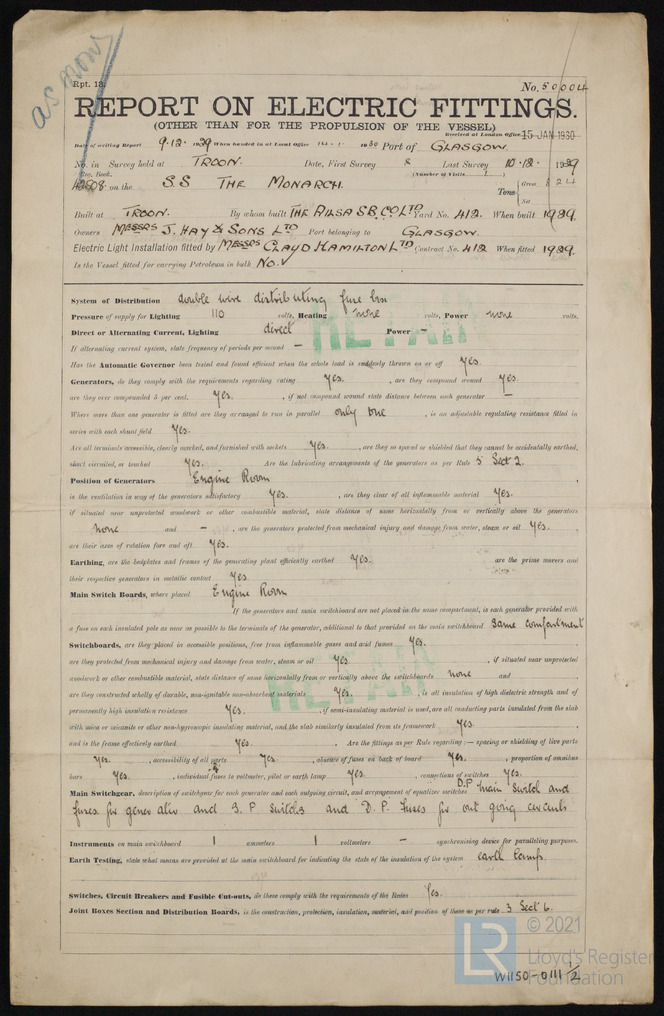 as now
Rpt. 13.
No. 50004
REPORT ON ELECTRIC FITTINGS.
(OTHER THAN FOR THE PROPULSION OF THE VESSEL)
Received at London Office 15 JAN 1930
Date of writing Report 9.12.1929 When handed in at Local Office 1930 Port of GLASGOW.
No. in Survey held at TROON. Date, First Survey Last Survey 10.12.1929
Reg. Book. (Number of Visits)
42808 on the S.S THE MONARCH. Tons Gross 824
Net
Built at TROON. By whom built THE AILSA S.B. Co LTD Yard No. 412. When built 1929.
Owners MESSRS J. HAY & SONS LTD Port belonging to GLASGOW.
Electric Light Installation fitted by MESSRS CLAUD HAMILTON LTD Contract No. 412 When fitted 1929.
Is the Vessel fitted for carrying Petroleum in bulk No.
RETAIN
System of Distribution double wire distributing fuse box
Pressure of supply for Lighting 110 volts, Heating none volts, Power none volts.
Direct or Alternating Current, Lighting direct Power —
If alternating current system, state frequency of periods per second —
Has the Automatic Governor been tested and found efficient when the whole load is suddenly thrown on or off Yes.
Generators, do they comply with the requirements regarding rating Yes. , are they compound wound Yes.
are they over compounded 5 per cent. Yes. , if not compound wound state distance between each generator —
Where more than one generator is fitted are they arranged to run in parallel only one , is an adjustable regulating resistance fitted in
series with each shunt field Yes.
Are all terminals accessible, clearly marked, and furnished with sockets Yes. , are they so spaced or shielded that they cannot be accidentally earthed,
short circuited, or touched Yes. Are the lubricating arrangements of the generators as per Rule 5 Sect 2.
Position of Generators Engine Room
is the ventilation in way of the generators satisfactory Yes. , are they clear of all inflammable material Yes.
if situated near unprotected woodwork or other combustible material, state distance of same horizontally from or vertically above the generators
none and — , are the generators protected from mechanical injury and damage from water, steam or oil Yes.
are their axes of rotation fore and aft Yes.
Earthing, are the bedplates and frames of the generating plant efficiently earthed Yes. are the prime movers and
their respective generators in metallic contact Yes.
Main Switch Boards, where placed Engine Room
If the generators and main switchboard are not placed in the same compartment, is each generator provided with
a fuse on each insulated pole as near as possible to the terminals of the generator, additional to that provided on the main switchboard Same compartment
Switchboards, are they placed in accessible positions, free from inflammable gases and acid fumes Yes.
are they protected from mechanical injury and damage from water, steam or oil Yes. , if situated near unprotected
woodwork or other combustible material, state distance of same horizontally from or vertically above the switchboards none and
RETAIN
are they constructed wholly of durable, non-ignitable non-absorbent materials Yes. , is all insulation of high dielectric strength and of
permanently high insulation resistance Yes. , if semi-insulating material is used, are all conducting parts insulated from the slab
with mica or micanite or other non-hygroscopic insulating material, and the slab similarly insulated from its framework Yes.
and is the frame effectively earthed Yes. . Are the fittings as per Rule regarding:— spacing or shielding of live parts
Yes. , accessibility of all parts Yes. , absence of fuses on back of board Yes. , proportion of omnibus
bars Yes. , individual fuses to voltmeter, pilot or earth lamp Yes. , connections of switches Yes.
Main Switchgear, description of switchgear for each generator and each outgoing circuit, and arrangement of equalizer switches D.P main switch and
fuses for generator and S.P switches and D.P. Fuses for out going circuits
Instruments on main switchboard 1 ammeters 1 voltmeters — synchronising device for paralleling purposes.
Earth Testing, state what means are provided at the main switchboard for indicating the state of the insulation of the system earth lamps.
Switches, Circuit Breakers and Fusible Cut-outs, do these comply with the requirements of the Rules Yes.
Joint Boxes Section and Distribution Boards, is the construction, protection, insulation, material, and position of these as per rule 3 Sect 6.
© 2021
LR Lloyd's Register
Foundation
W1150-0111 1/2